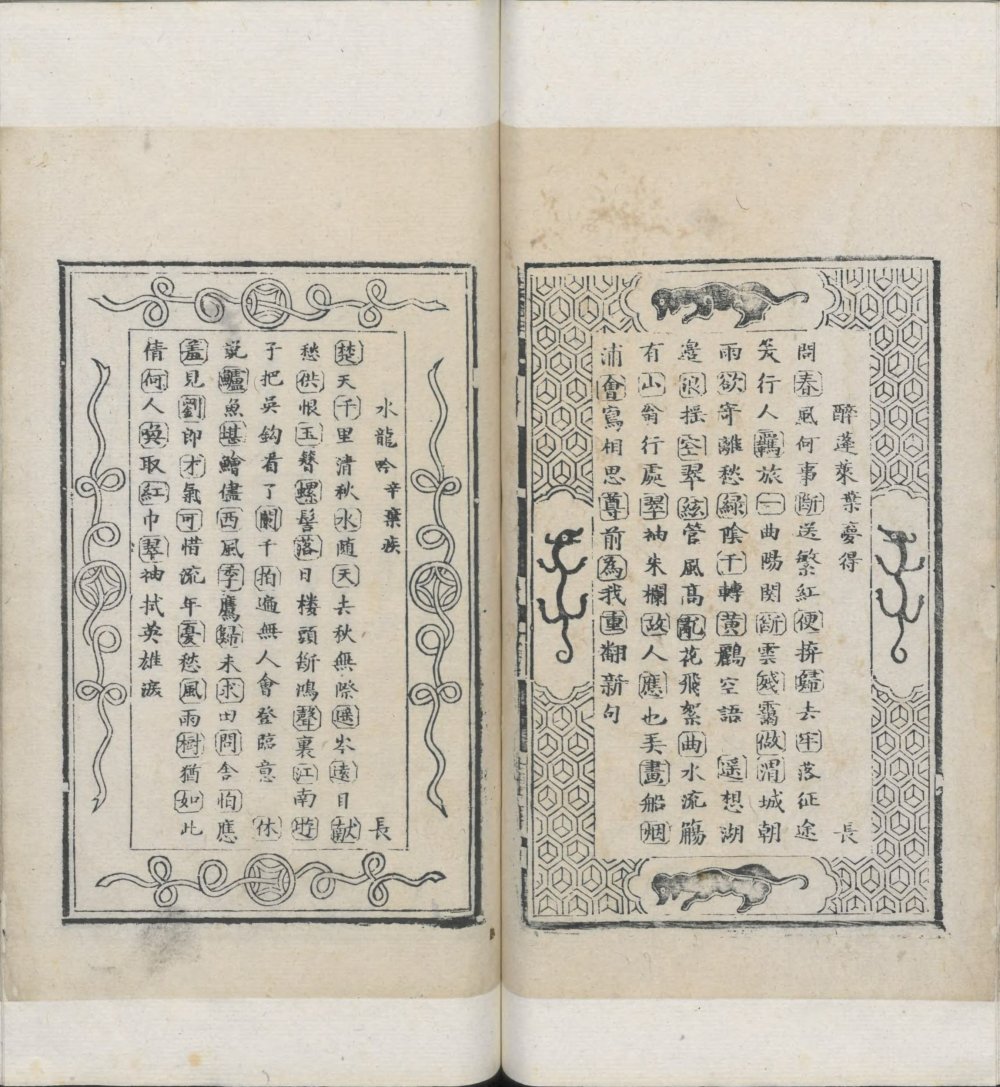 醉蓬萊 葉夢得 長
問春風何事斷送繁紅便拚歸去牢落征途
笑行人羈旅一曲陽関斷雲殘靄做渭城朝
雨欲寄離愁綠陰千轉黃鸝空語 遥想湖
邊浪揺空翠絃管風髙亂花飛絮曲水流觴
有山翁行處翠袖朱欄故人應也弄畫船烟
浦會寫相思尊前為我重翻新句
水龍吟 辛棄疾 長
楚天千里清秋水随天去秋無際遥岑遠目献
愁供恨玉簪螺髻落日楼頭斷鴻聲裏江南遊
子把吳鈎看了闌干拍遍無人會登臨意 休
說鱸魚堪鱠儘西風季鷹歸未求田問舎怕應
羞見劉郎才氣可惜流年憂愁風雨樹猶如此
倩何人喚取紅巾翠袖拭英雄淚